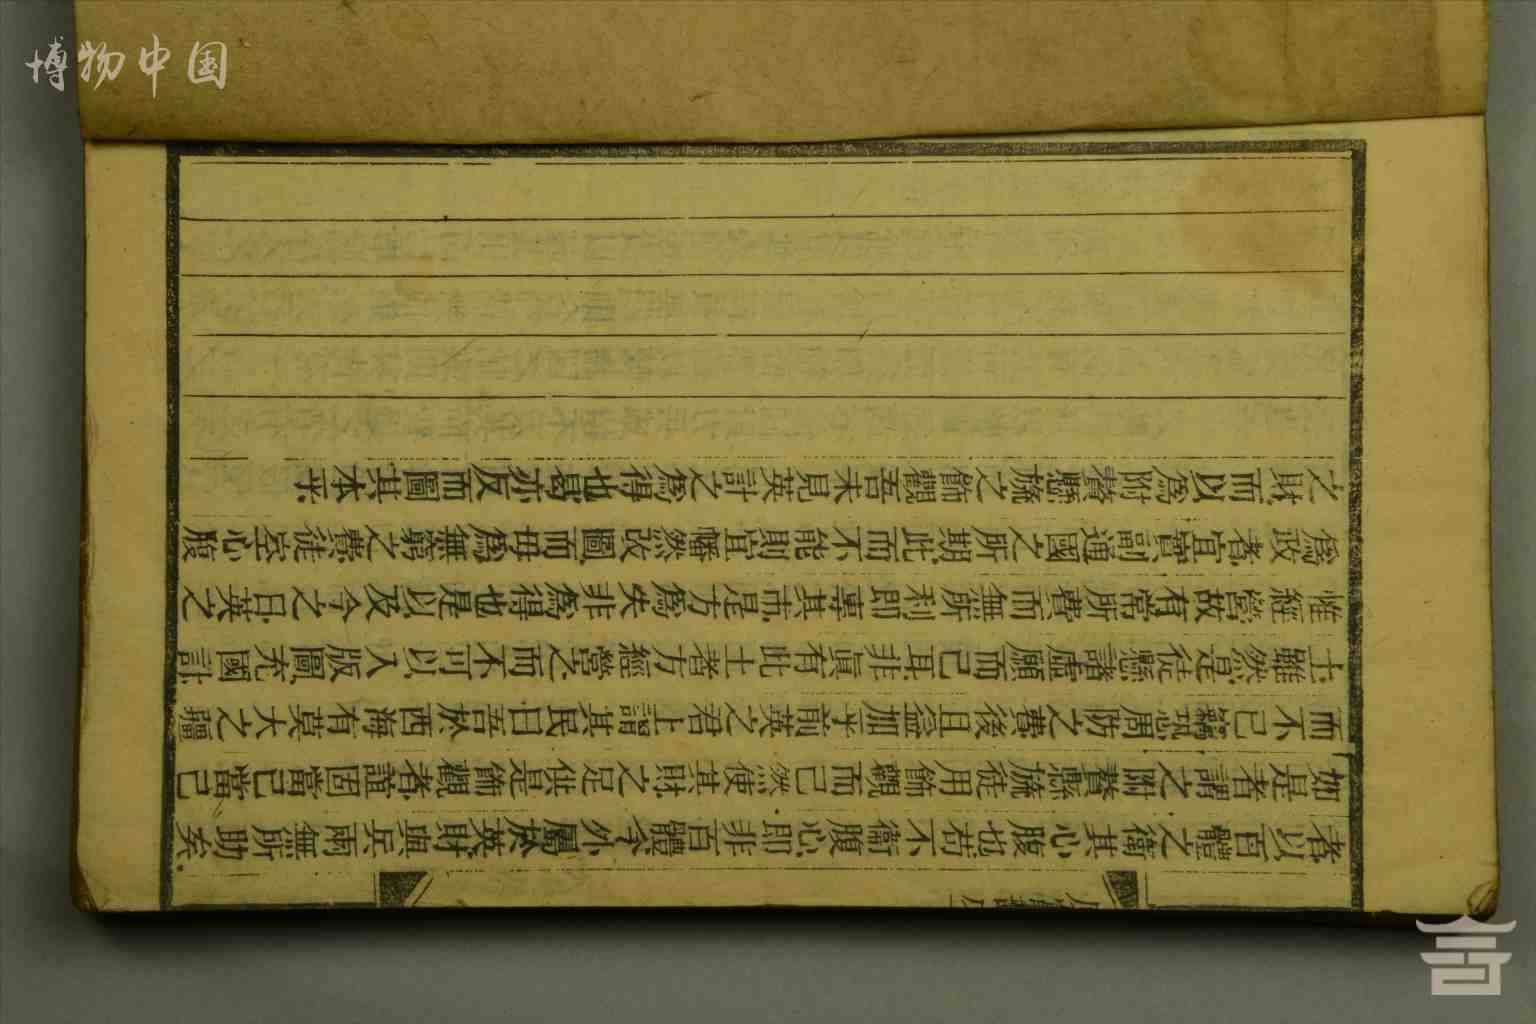 者以百體之衛其心腹也苟不衛腹心即非百體今外屬於英財與兵兩無所助矣
如是者謂之附贅懸旒徒用飾觀而已然使其財之足供是飾觀者誼固當已當已
而不已竊恐周防之費後且益加乎前英之君上謂其民曰吾於西海有莫大之疆
土雖然是徒懸諸虛願而已其非眞有此土者方經營之而不可以入版圖充國計
惟經營故有常所費而無所利卽專其市是方爲失非爲得也是以及今之日英之
爲政者宜實副通國之所期此而不能則宜幡然改圖而毋爲無窮之費徒空心腹
之財而以爲附贅懸旒之飾觀吾未見英計之爲得也曷亦反而圖其本乎
博物中国